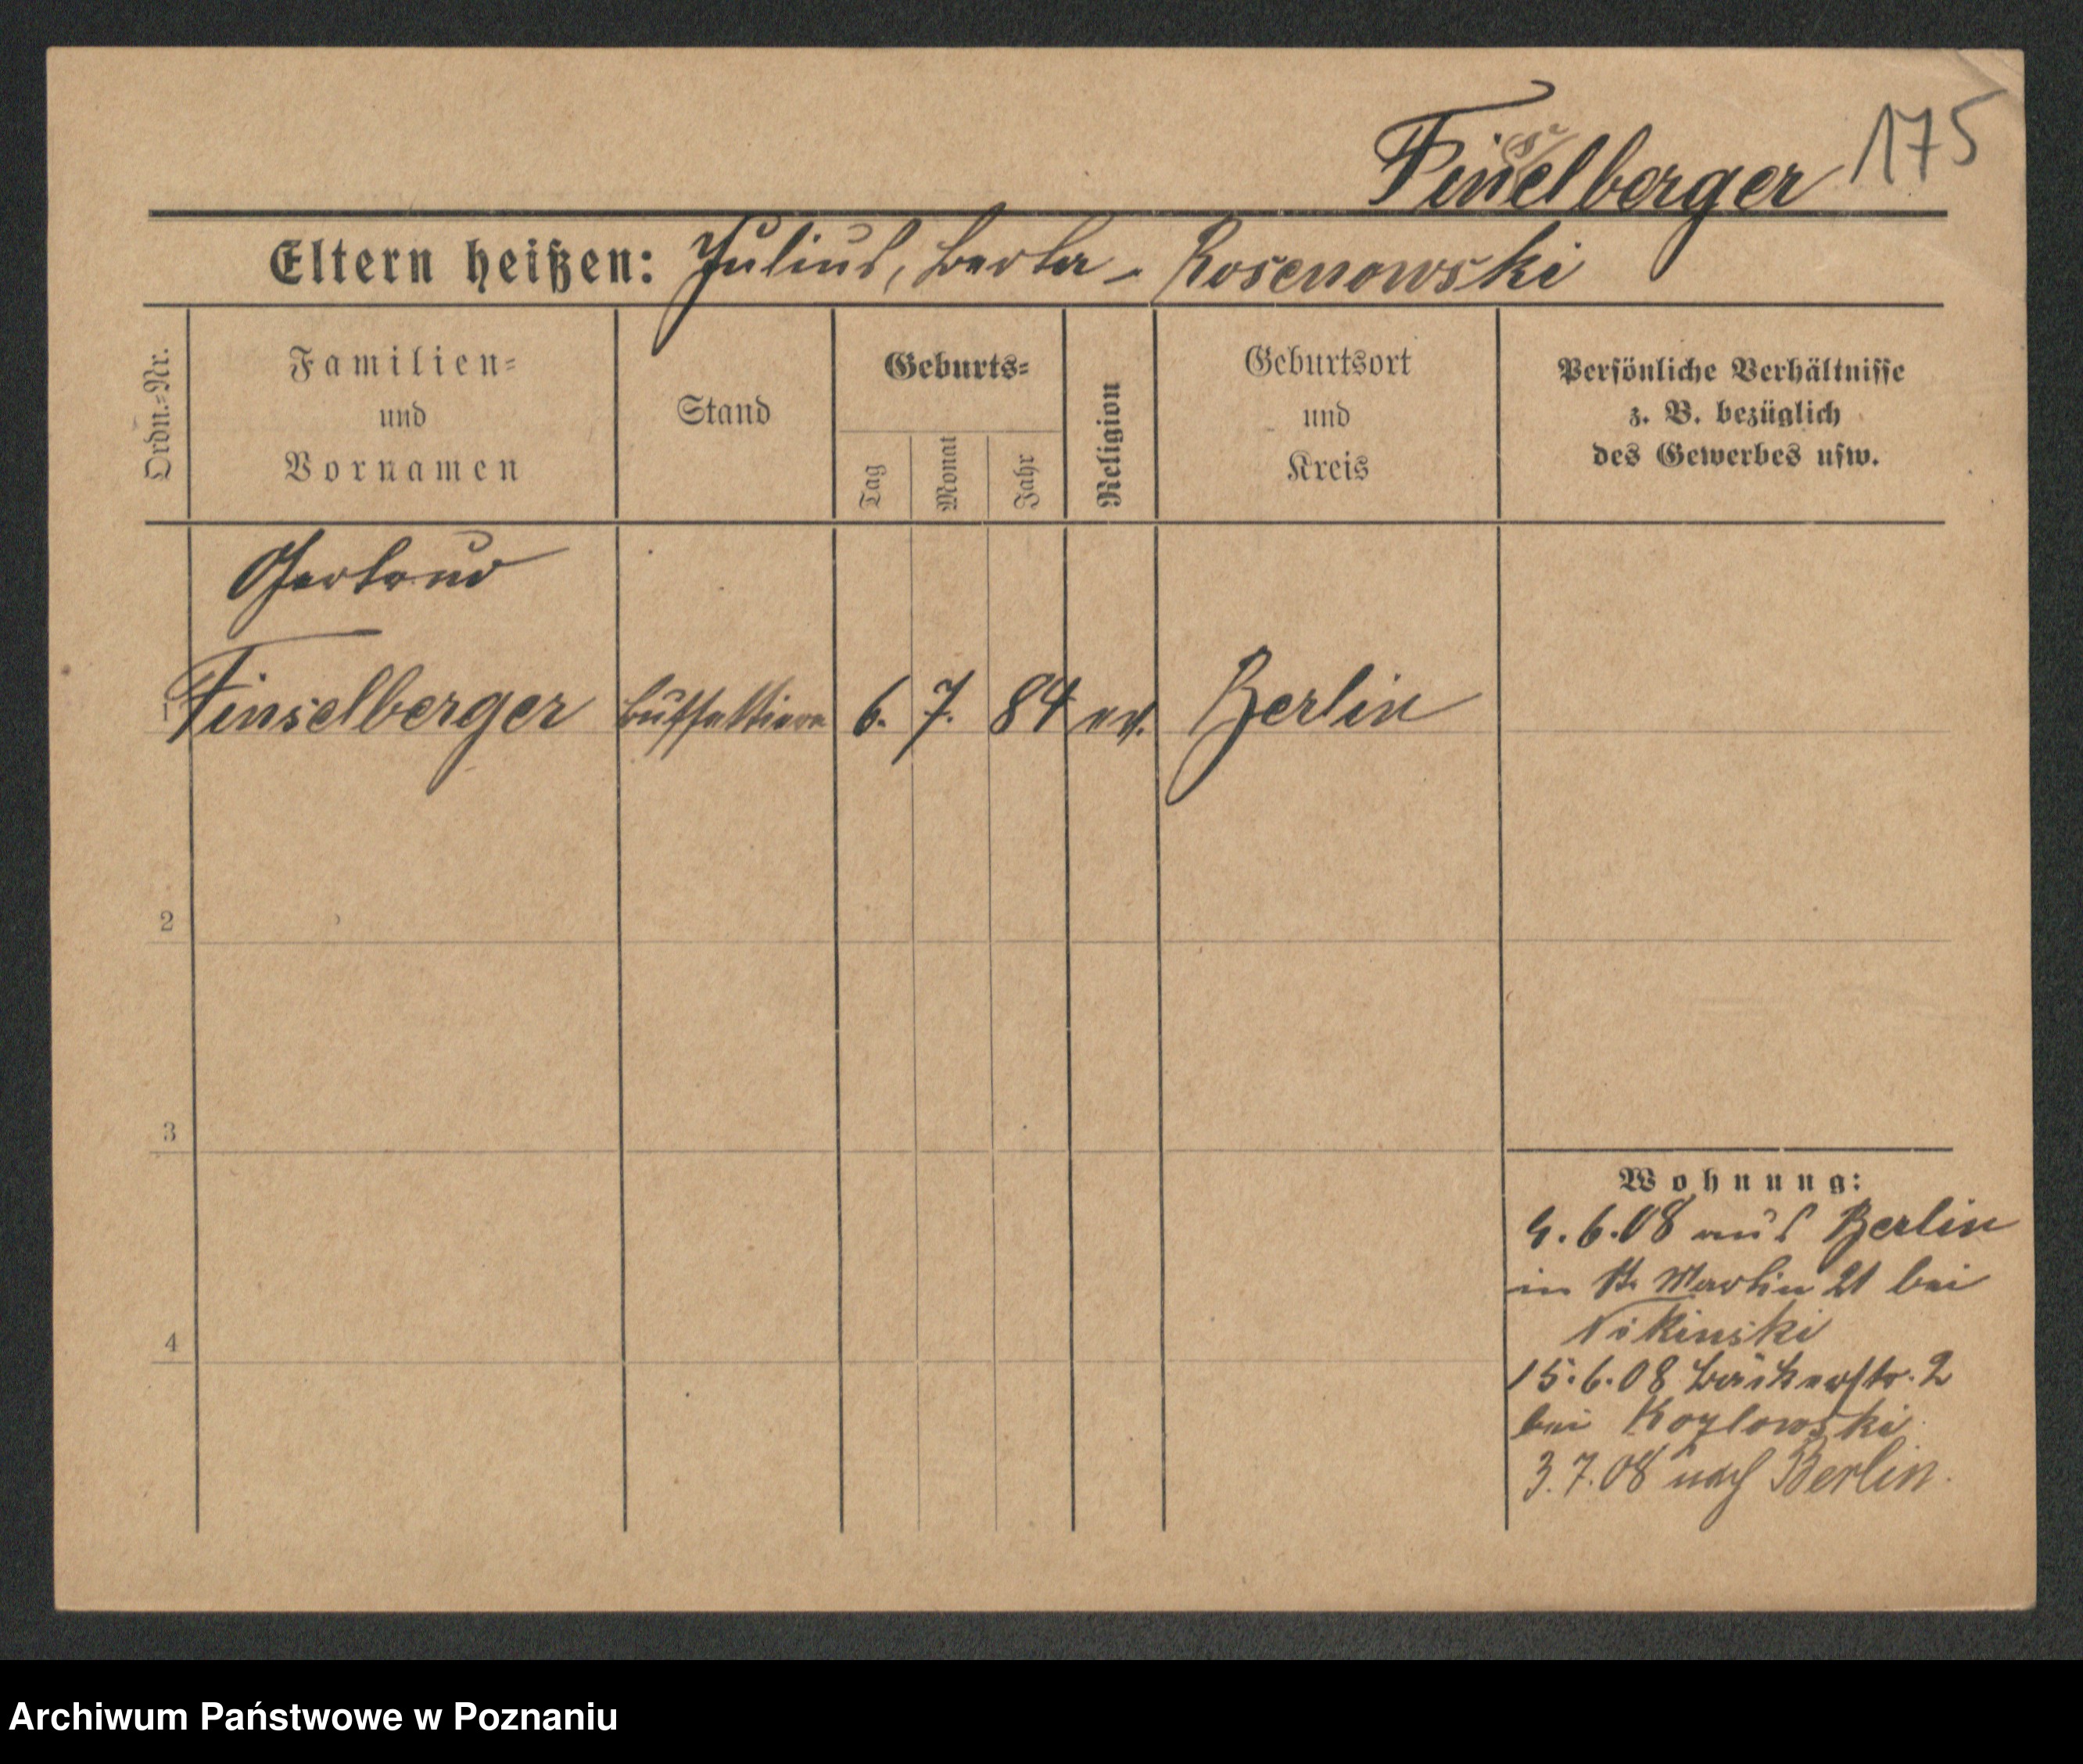 Finselberger 175
Eltern heißen: Julius, Berta - Rosenowski
Ordn.=Nr.
Familien=
und
Vornamen
Stand
Geburts=
Tag
Monat
Jahr
Religion
Geburtsort
und
Kreis
Persönliche Verhältnisse
z. B. bezüglich
des Gewerbes usw.
Gertrud
1 Finselberger Buffettiere 6. 7. 84 ev. Berlin
2
3
4
Wohnung:
4.6.08 aus Berlin
in St. Martin 21 bei
Nikinski
15.6.08 Bäckerstr. 2
bei Kozlowski
3.7.08 nach Berlin.
Archiwum Państwowe w Poznaniu